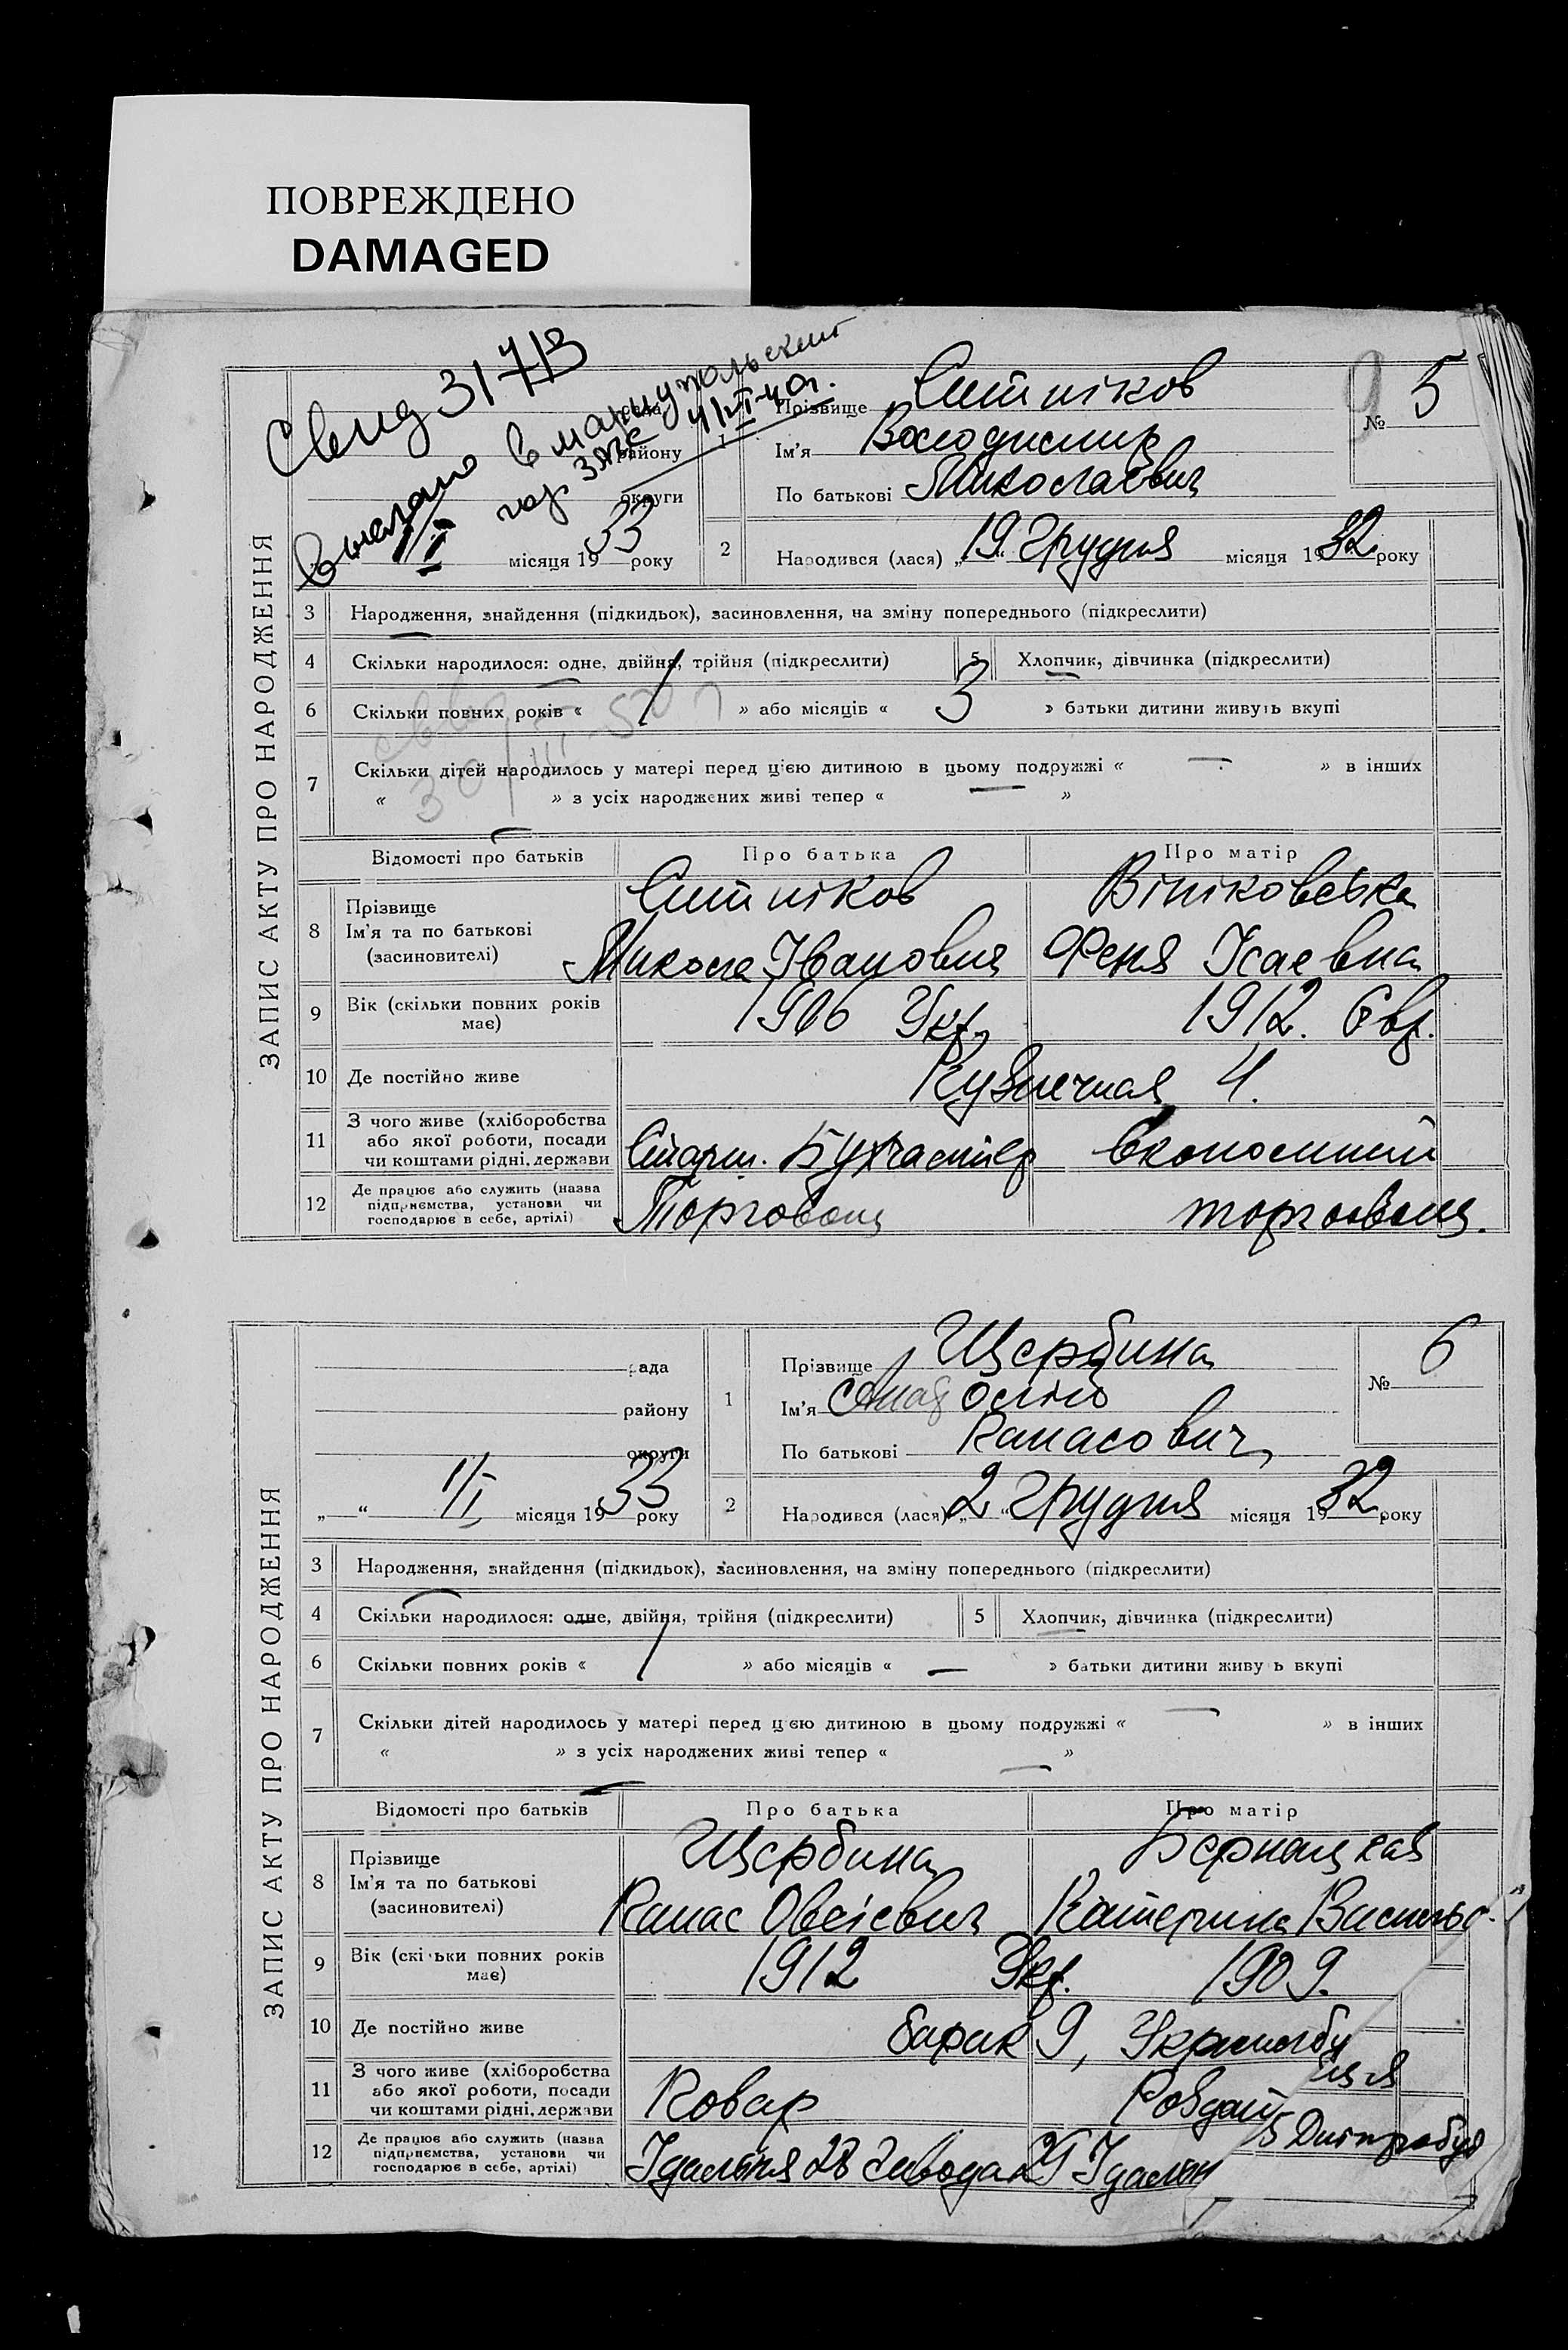 ПОВРЕЖДЕНО
DAMAGED
ЗАПИС АКТУ ПРО НАРОДЖЕННЯ
района
округи
місяця 1933 року
1
Прізвище Ситніков
Ім'я Володимир
По батькові Миколаєвич
№ 5
2
Народився (лася) „19“ Грудня місяця 1932 року
3 Народження, знайдення (підкидьок), засиновлення, на зміну попереднього (підкреслити)
4 Скільки народилося: одне, двійня, трійня (підкреслити)
5 Хлопчик, дівчинка (підкреслити)
6 Скільки повних років « » або місяців « 3 » батьки дитини живуть вкупі
7 Скільки дітей народилось у матері перед цією дитиною в цьому подружжі « — » в інших
« » з усіх народжених живі тепер « — »
Відомості про батьків Про батька Про матір
8 Прізвище
Ім'я та по батькові
(засиновителі)
Ситніков
Микола Іванович
Вініковська
Феня Ісаевна
9 Вік (скільки повних років має)
1906 Укр. 1912. Євр.
10 Де постійно живе
Кузнечная 4.
11 З чого живе (хліборобства
або якої роботи, посади
чи коштами рідні, держави
Старш. Бухгалтер
економист
12 Де працює або служить (назва
підприємства, установи чи
господарює в себе, артілі)
ЗАПИС АКТУ ПРО НАРОДЖЕННЯ
рада
району
округи
„ “ 1/I місяця 1933 року
1
Прізвище Щербина
Ім'я
По батькові Панасович
№ 6
2
Народився (лася) „2“ Грудня місяця 1932 року
3 Народження, знайдення (підкидьок), засиновлення, на зміну попереднього (підкреслити)
4 Скільки народилося: одне, двійня, трійня (підкреслити)
5 Хлопчик, дівчинка (підкреслити)
6 Скільки повних років « 1 » або місяців « — » батьки дитини живуть вкупі
7 Скільки дітей народилось у матері перед цією дитиною в цьому подружжі « — » в інших
« » з усіх народжених живі тепер « — »
Відомості про батьків Про батька Про матір
8 Прізвище
Ім'я та по батькові
(засиновителі)
Щербина
Панас Овсієвич
Бернацкая
Катерина
9 Вік (скільки повних років має)
1912 Укр. 1909.
10 Де постійно живе
барак 9,
11 З чого живе (хліборобства
або якої роботи, посади
чи коштами рідні, держави
Ковар
12 Де працює або служить (назва
підприємства, установи чи
господарює в себе, артілі)
Їдальня 28